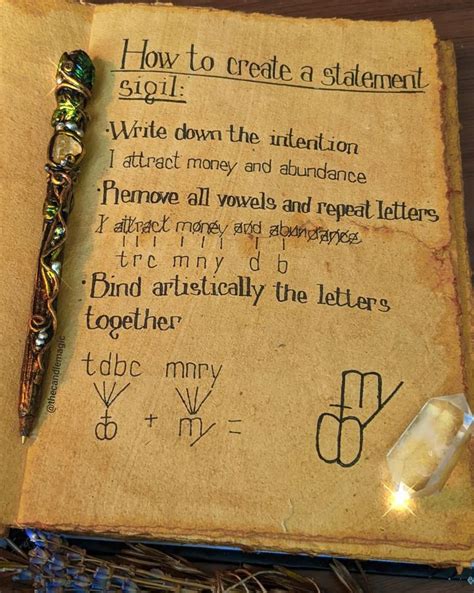 How to create a statement
sigil:
·Write down the intention
I attract money and abundance
·Remove all vowels and repeat letters
I attract money and abundance
trc mny d b
·Bind artistically the letters
together
tdbc mnry
+ =
@thecandlemagic